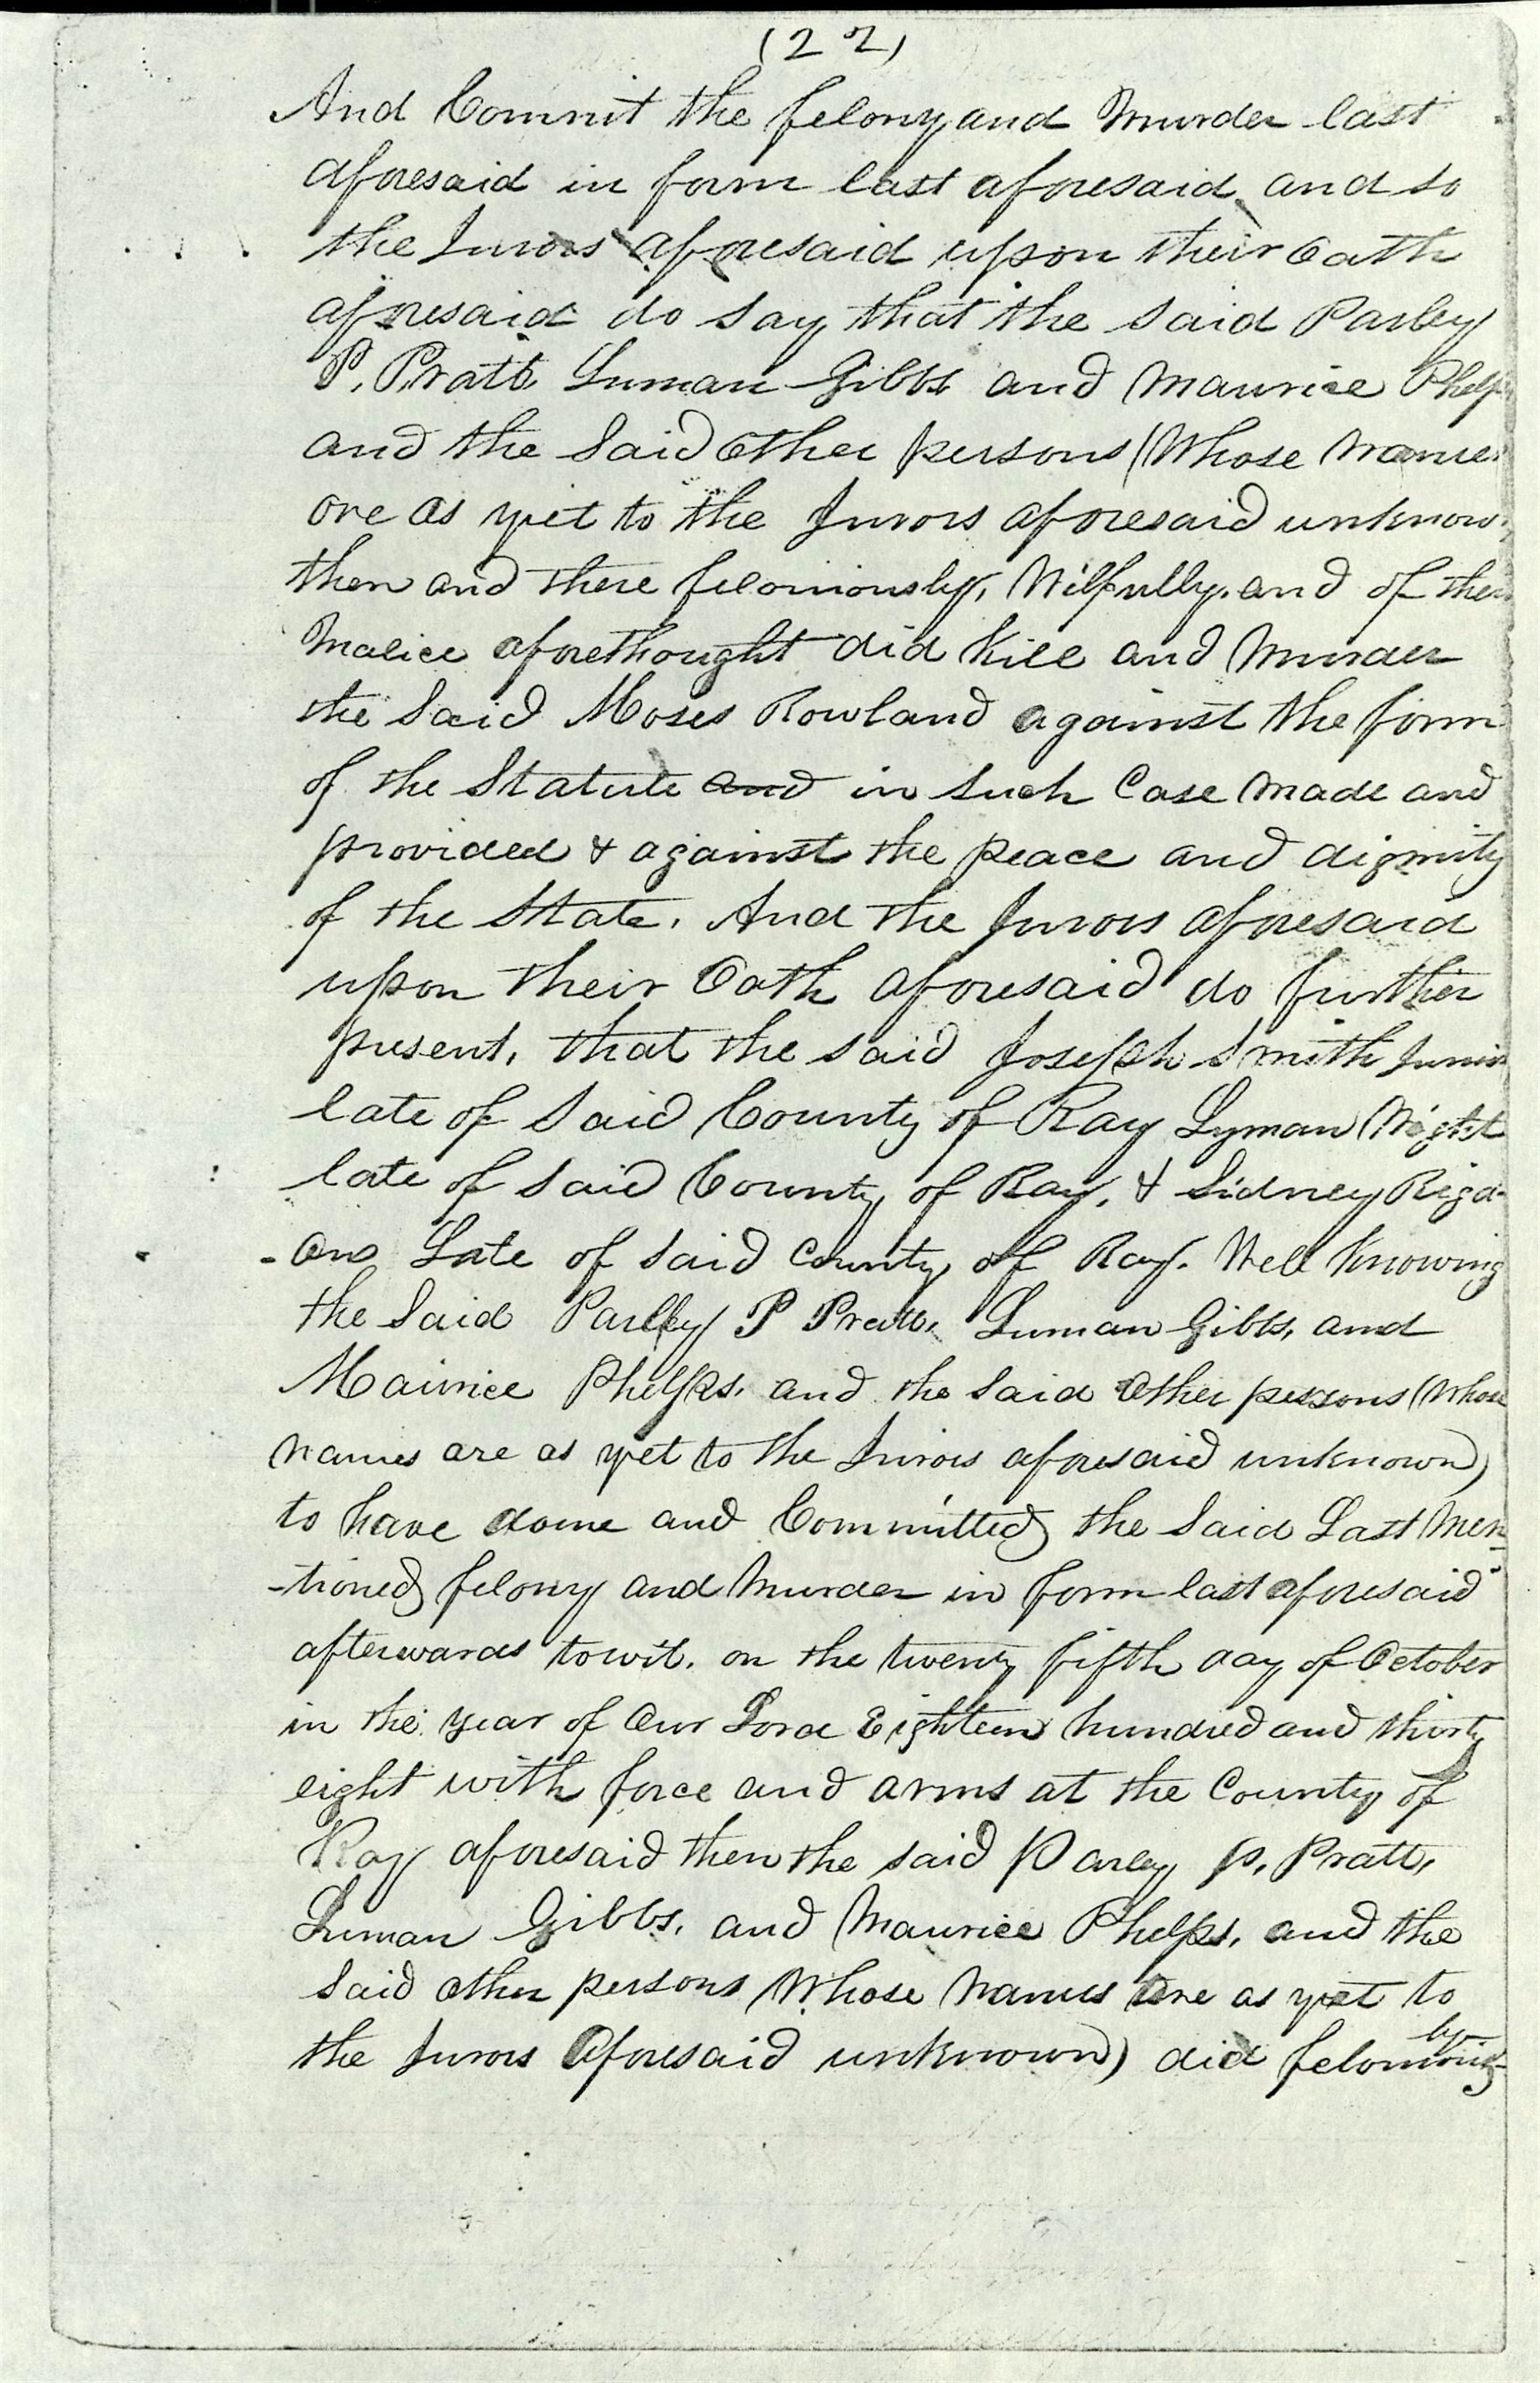 (22)
And Commit the felony and Murder last
aforesaid in form last aforesaid and so
the Jurors aforesaid upon their Oath
aforesaid do Say, that the Said Parley
P. Pratt Luman Gibbs and Maurice Phelps
and the Said Other persons (Whose Names
are as yet to the Jurors aforesaid unknow
then and there feloniously, Wilfully, and of their
Malice aforethought did Kill and Murder
the Said Moses Rowland against the form
of the Statute and in Such Case Made and
provided & against the peace and dignity
of the State. And the Jurors aforesaid
upon their Oath aforesaid do further
present, that the said Joseph Smith Junior
late of Said County of Ray Lyman Wight
late of Said County of Ray, & Sidney Rigd-
-on Late of Said County of Ray. Well Knowing
the Said Parley P Pratt, Luman Gibbs, and
Maurice Phelps, and the Said Other persons (Whose
Names are as yet to the Jurors aforesaid unknown)
to have done and Committed the Said Last Men
-tioned felony and Murder in form last aforesaid
afterwards towit. on the twenty fifth day of October
in the year of Our Lord Eighteen hundred and thirty
eight with force and arms at the County of
Ray aforesaid then the said Parley P. Pratt,
Luman Gibbs, and Maurice Phelps, and the
Said other persons Whose Names are as yet to
the Jurors Aforesaid unknown) did felonious
ly